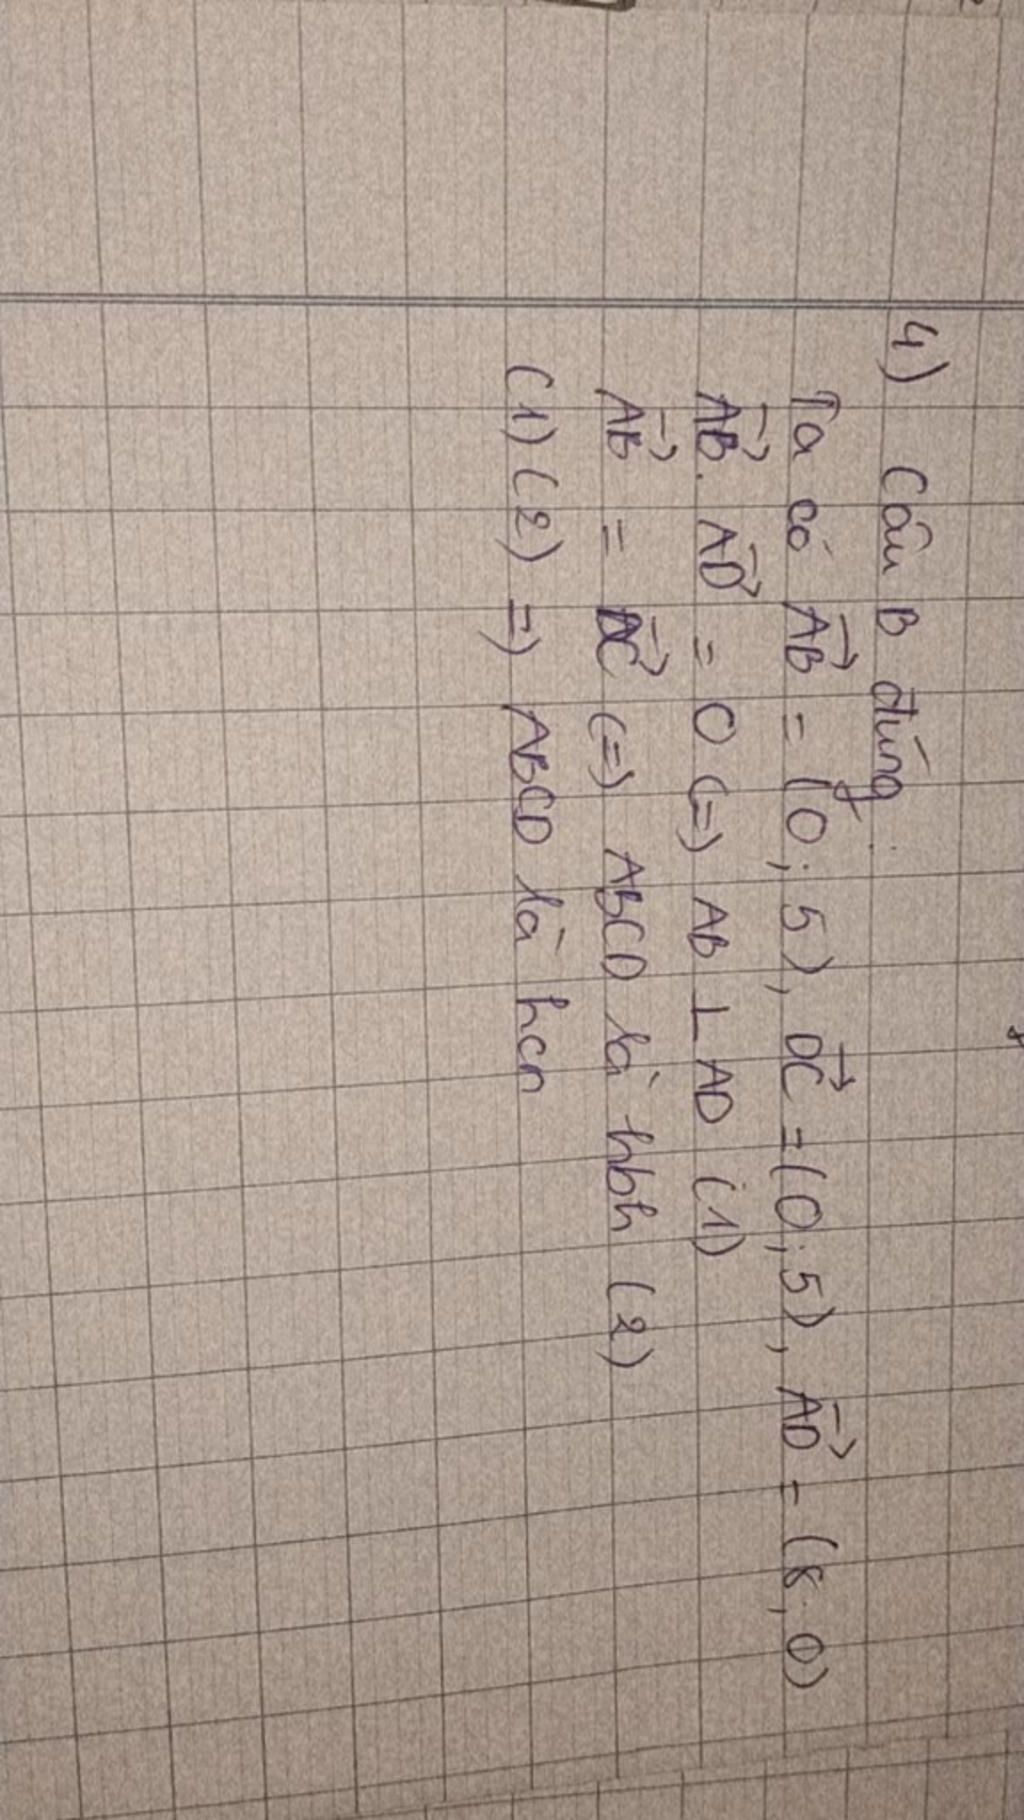 4) Câu B đúng.
Ta có $\overrightarrow{AB}$ = (0; 5), $\overrightarrow{DC}$ = (0; 5), $\overrightarrow{AD}$ = (8; 0)
$\overrightarrow{AB}$. $\overrightarrow{AD}$ = 0 (=) AB ⊥ AD (1)
$\overrightarrow{AB}$ = $\overrightarrow{DC}$ (=) ABCD là hbh (2)
(1) (2) =) ABCD là hcn